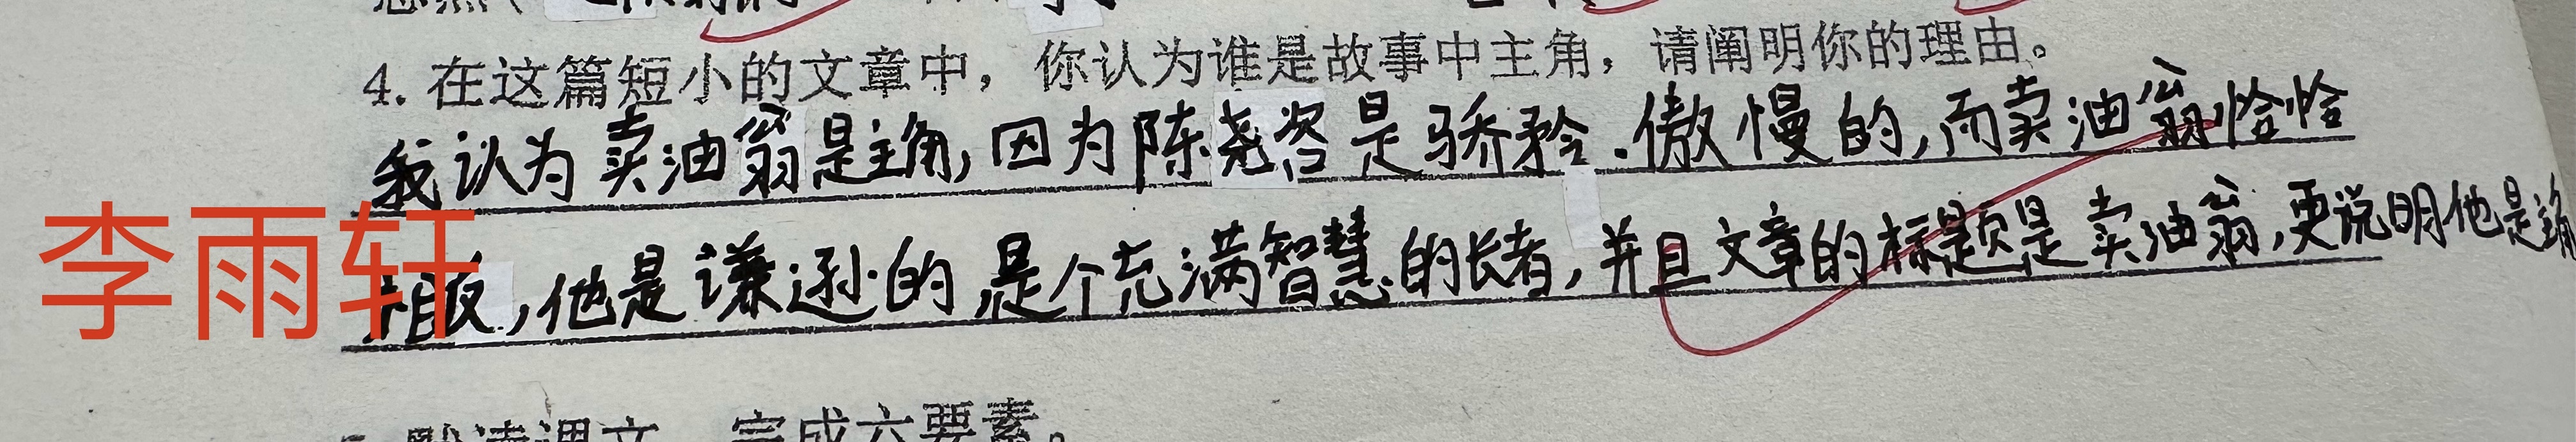 4. 在这篇短小的文章中，你认为谁是故事中主角，请阐明你的理由。
我认为卖油翁是主角,因为陈尧咨是骄矜.傲慢的,而卖油翁恰恰
相反,他是谦逊的,是个充满智慧的长者,并且文章的标题是卖油翁,更说明他是
李雨轩
默读课文，完成六要素。